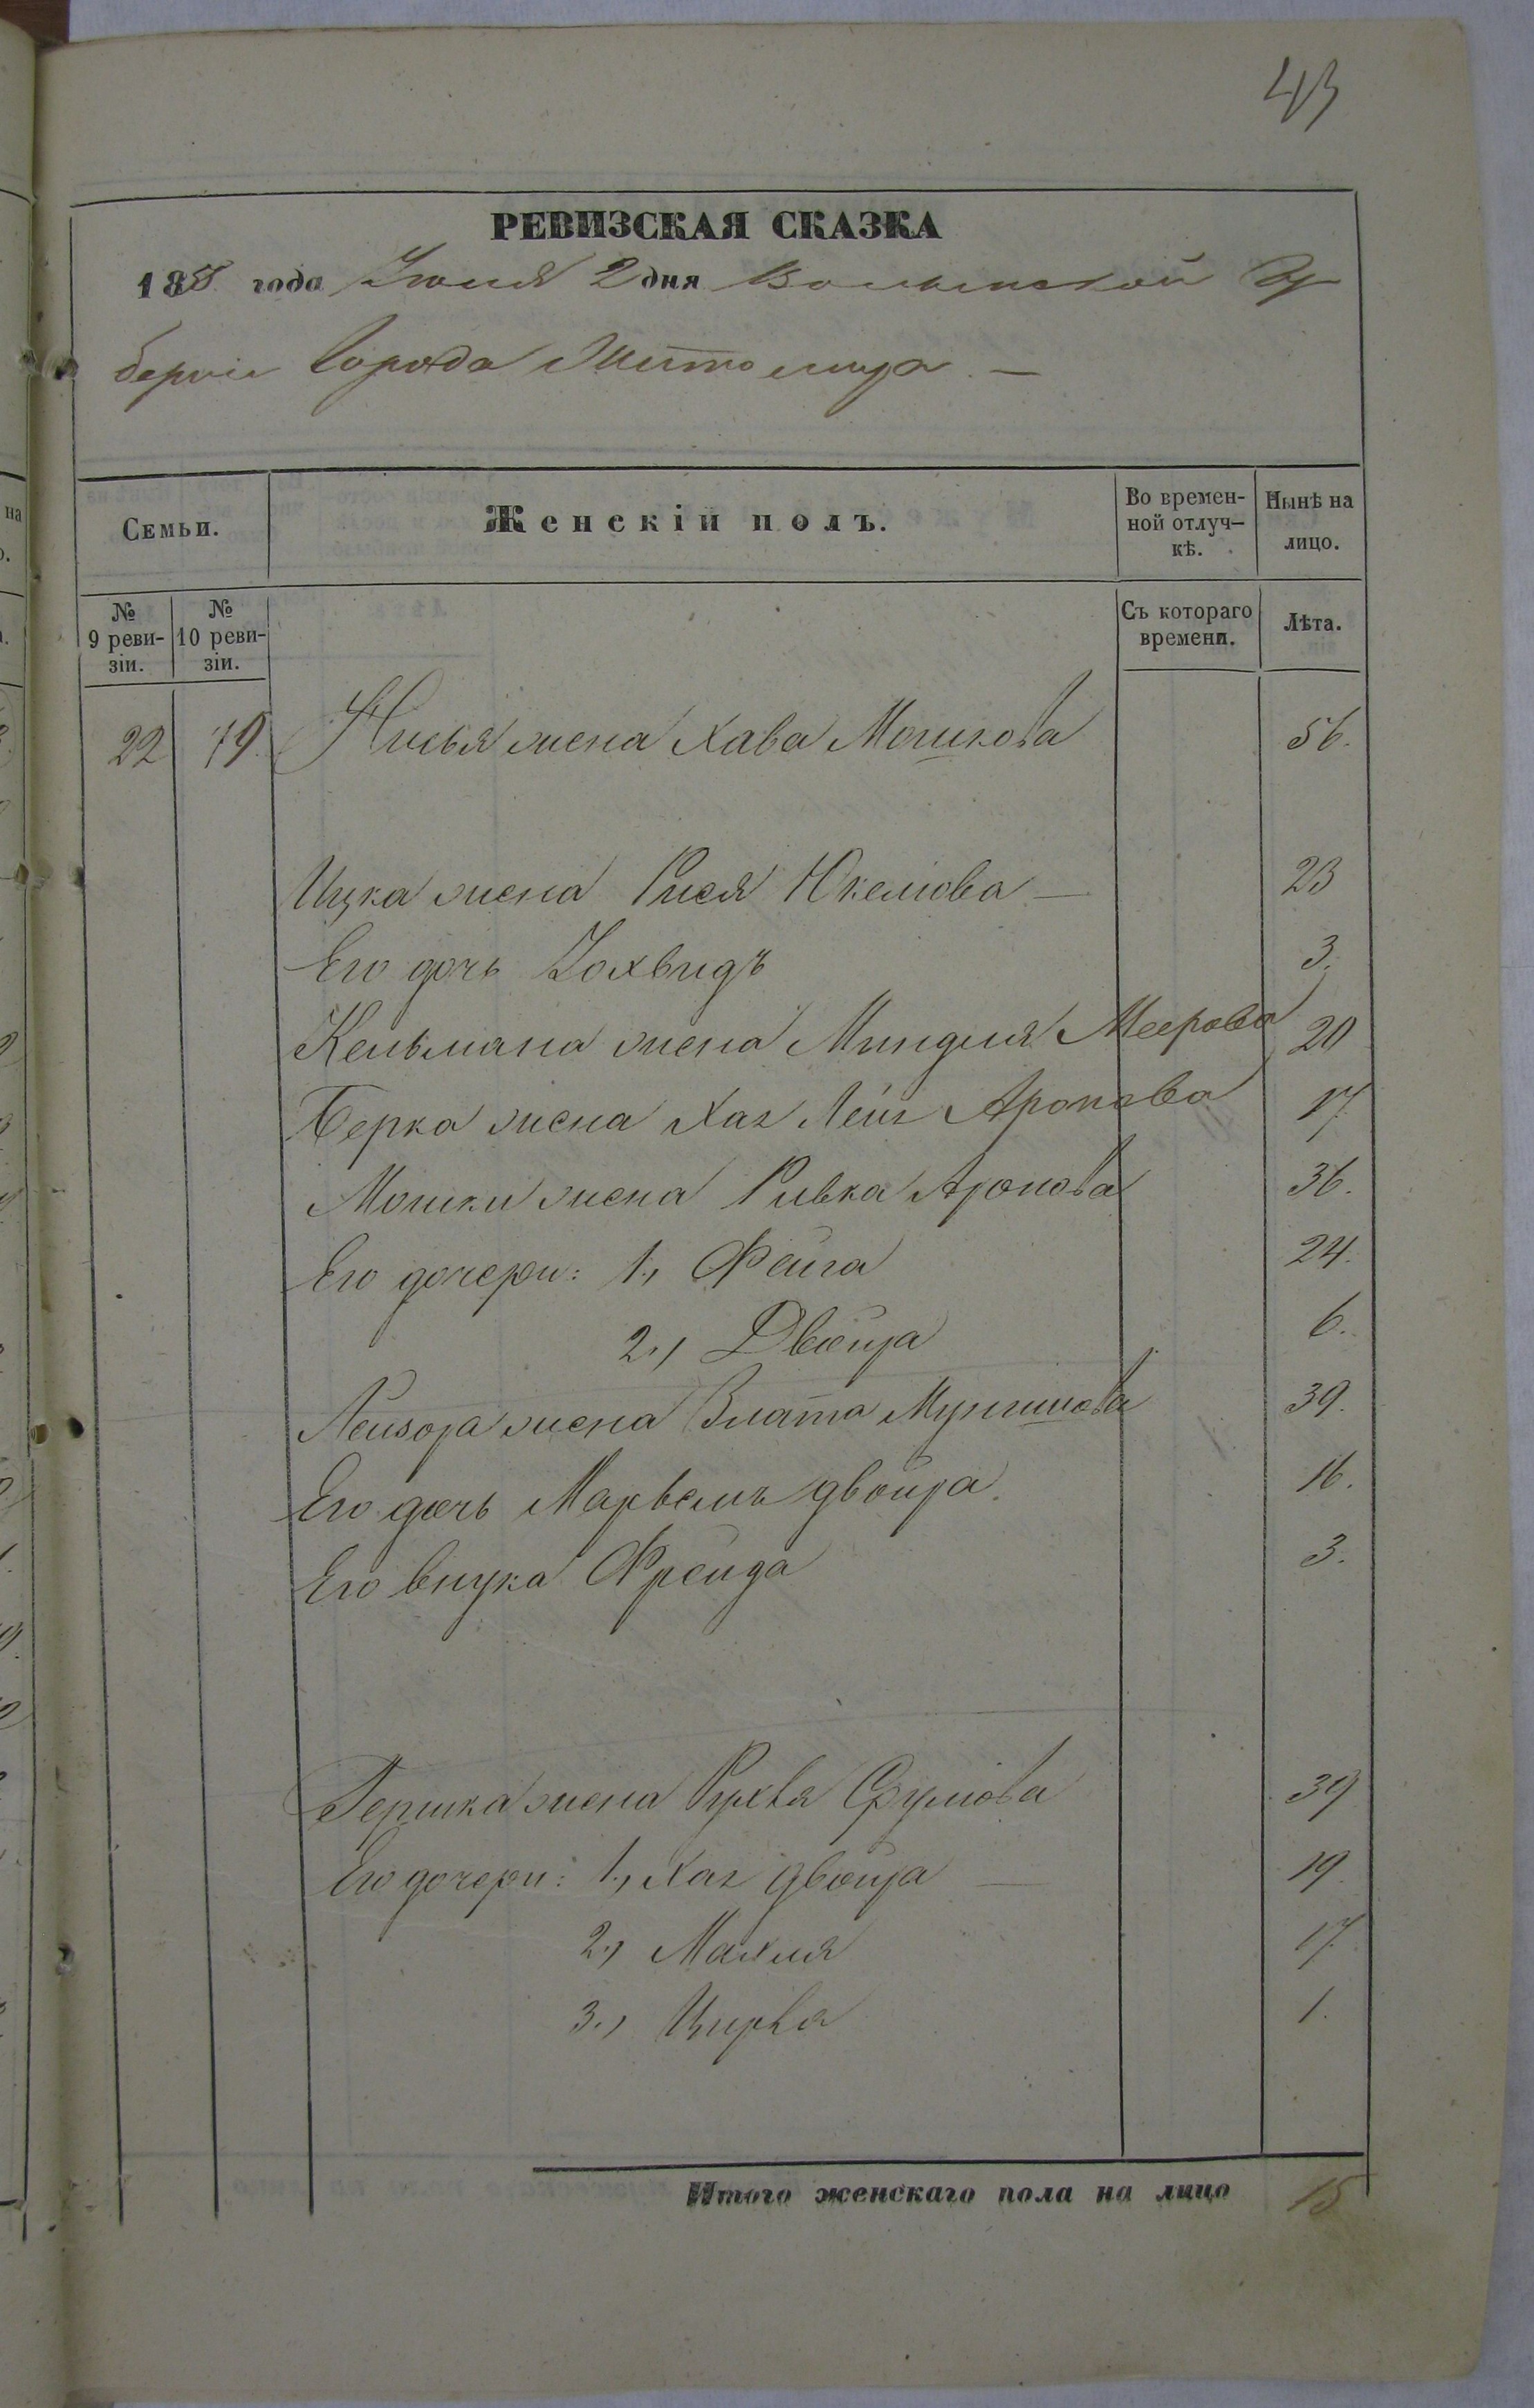 43
РЕВИЗСКАЯ СКАЗКА
1858 года Июня 2 дня Волынской Гу
берніи Города Житомира. —
Семьи. Женскій полъ. Во времен-
ной отлуч-
кѣ. Нынѣ на
лицо.
№
9 реви-
зіи. №
10 реви-
зіи. Съ котораго
времени. Лѣта.
22 79. жена Хава Мошкова 56.
Ицка жена Рися Юкелiова — 23
Его дочь Іохвидъ 3.
Кельмана жена Миндля Меерова 20
Берка жена Хая Лея Аронова 17
Мошки жена Ривка Аронова 36.
Его дочери: 1., Фейга 24.
2., Двойра 6.
Лейзора жена Злата 39.
Его дочь Двойра. 16.
Его внука Фрейда 3.
Гершка жена Рухля Сруліова 39
Его дочери: 1., Хая Двойра — 19
2., Махля 17
3., Цирля 1.
Итого женскаго пола на лицо 15